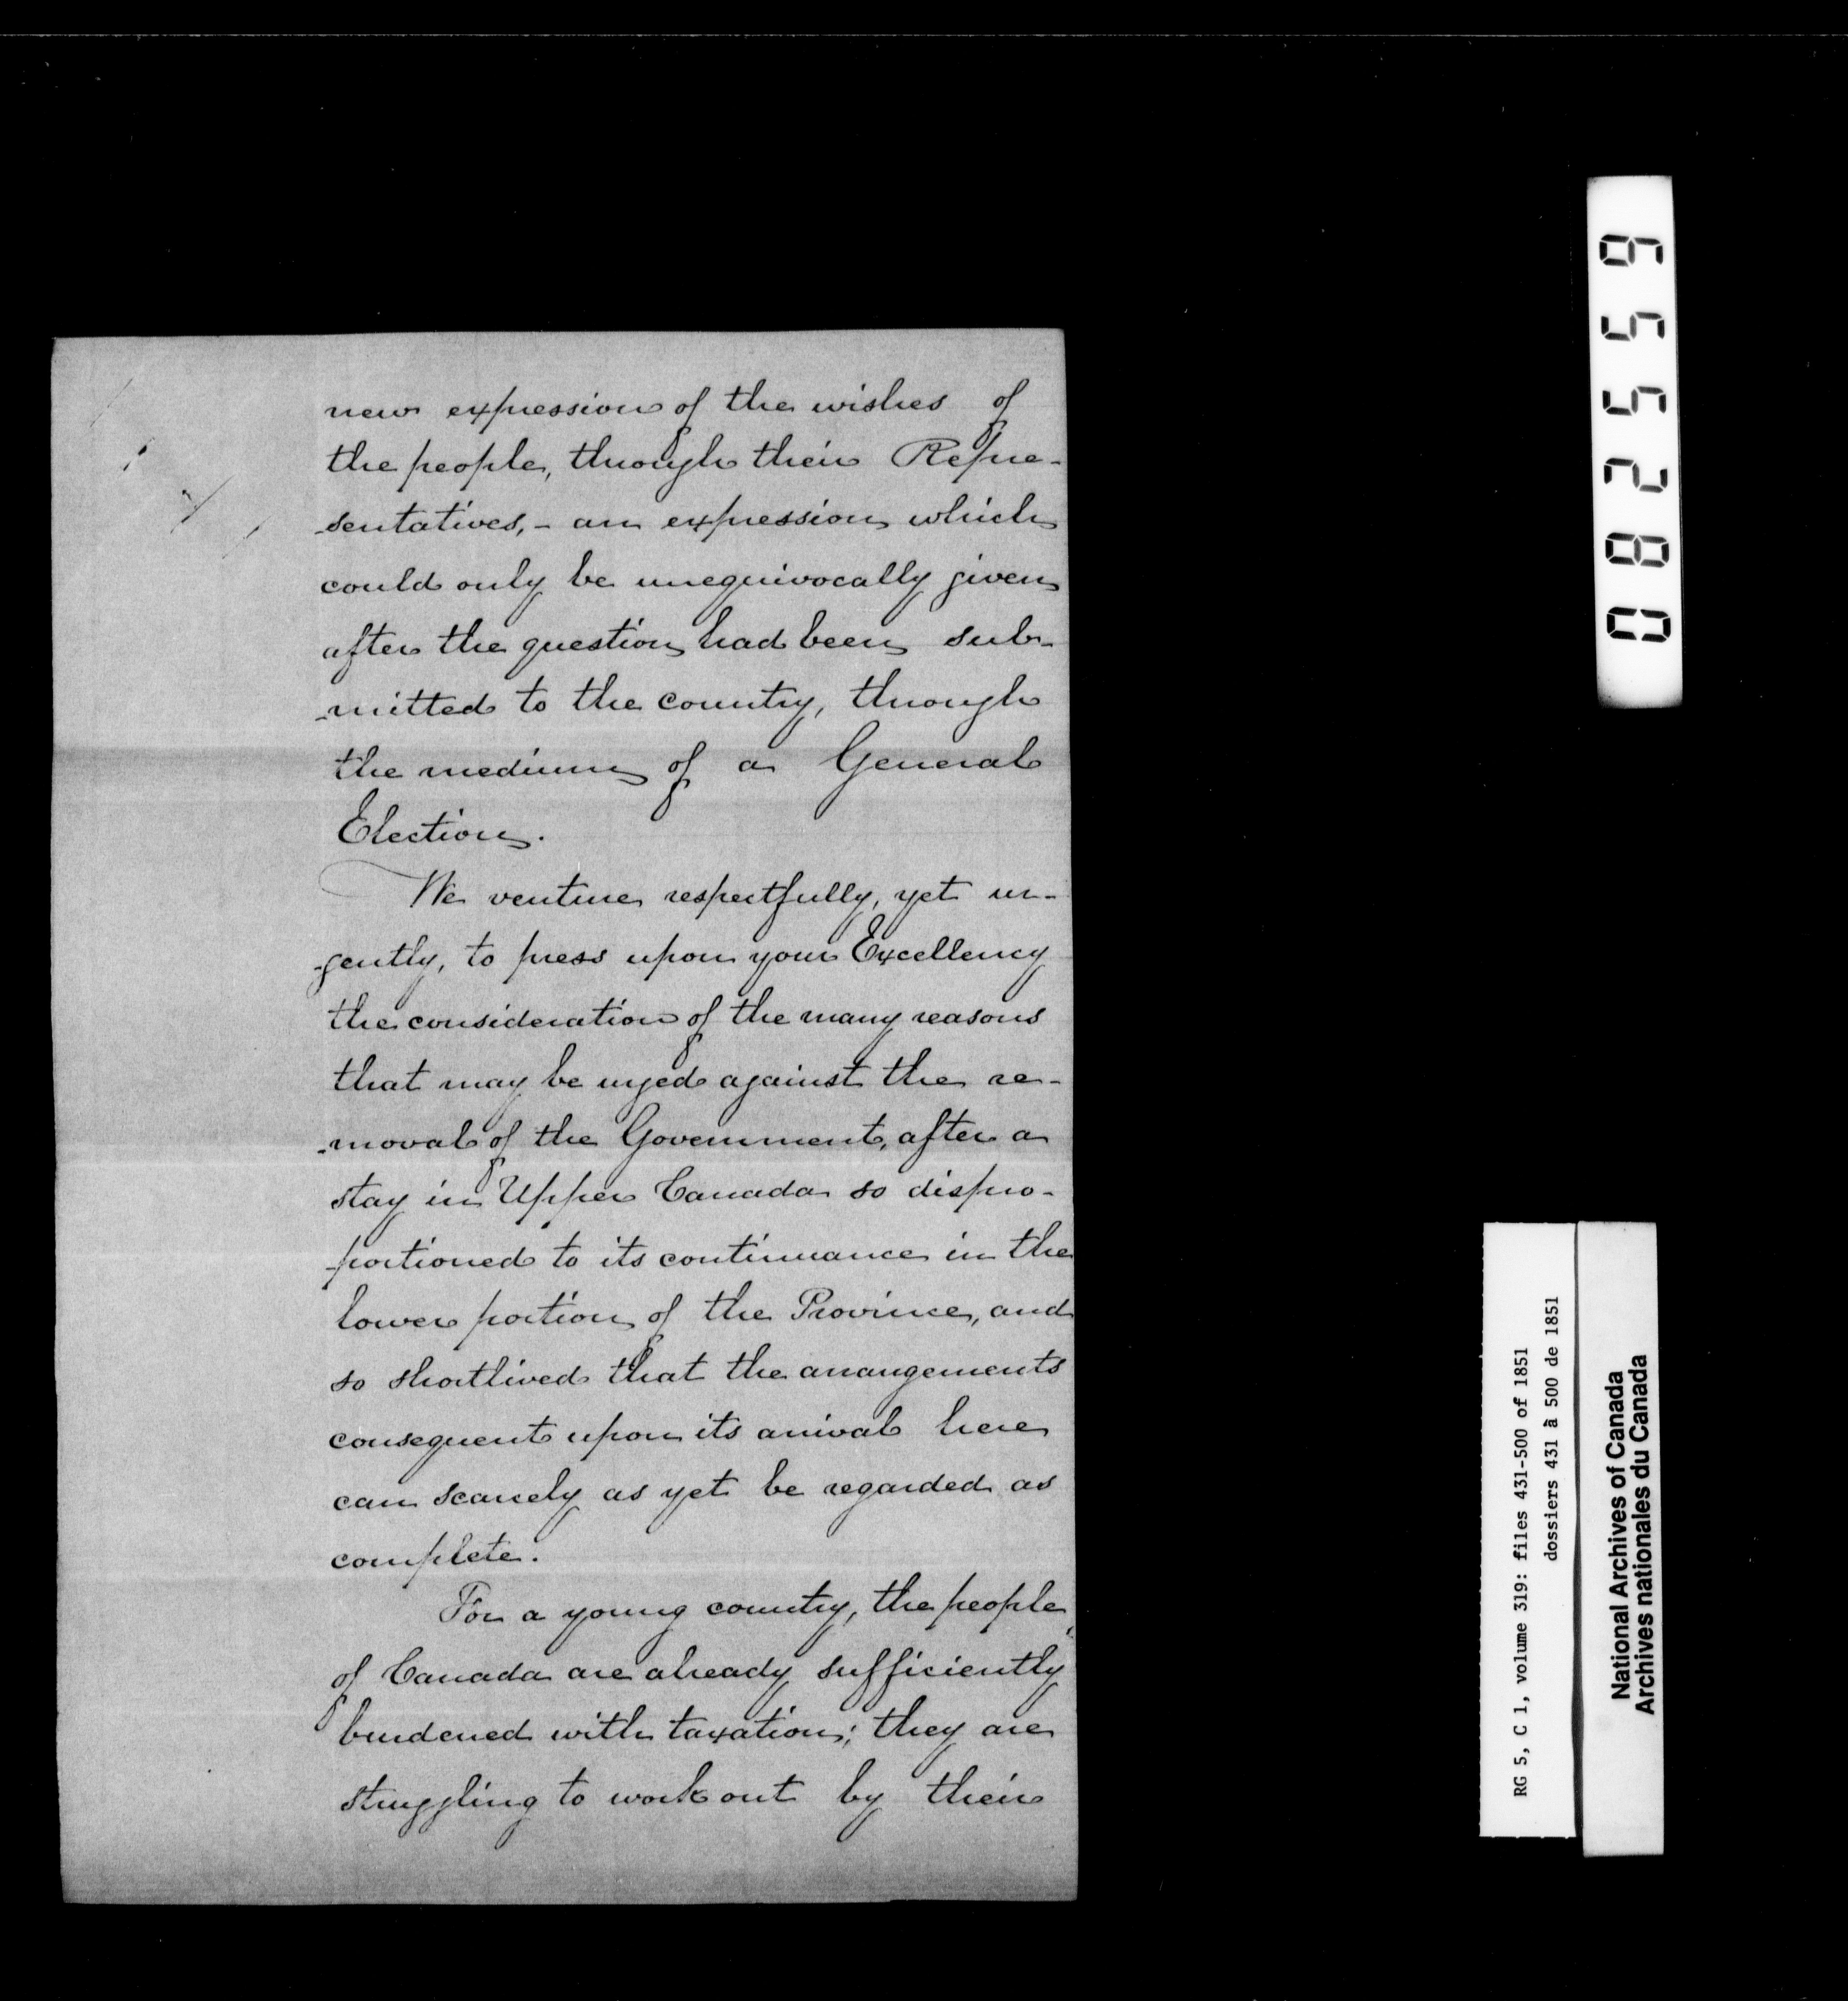 new expression of the wishes of
the people, through their Repre-
-sentatives, - an expression which
could only be unequivocally given
after the question had been sub-
-mitted to the country, through
the medium of a General
Election.
We venture respectfully, yet ur-
-gently, to press upon your Excellency
the consideration of the many reasons
that may be urged against the re-
-moval of the Government, after a
stay in Upper Canada so dispro-
-portioned to its continuance in the
lower portion of the Province, and
so shortlived that the arrangements
consequent upon its arrival here
can scarcely as yet be regarded as
complete.
For a young country, the people
of Canada are already sufficiently
burdened with taxation; they are
struggling to work out by their
082559
RG 5, C 1, volume 319: files 431-500 of 1851
dossiers 431 à 500 de 1851
National Archives of Canada
Archives nationales du Canada